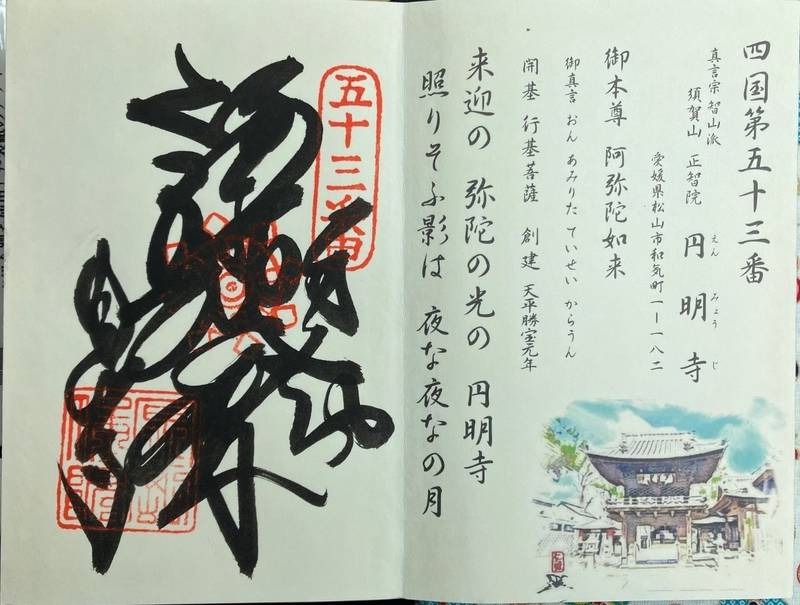 四国第五十三番
真言宗智山派
須賀山 正智院 円明寺
えん みょう じ
愛媛県松山市和気町一ー一八二
御本尊 阿弥陀如来
御真言 おん あみりた ていせい からうん
開基 行基菩薩 創建 天平勝宝元年
来迎の 弥陀の光の 円明寺
照りそふ影は 夜な夜なの月
五十三番